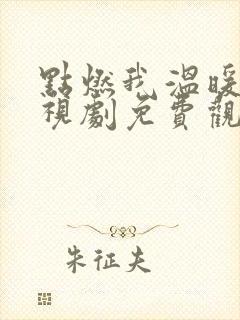 點燃我溫暖
視劇免費觀
朱征夫